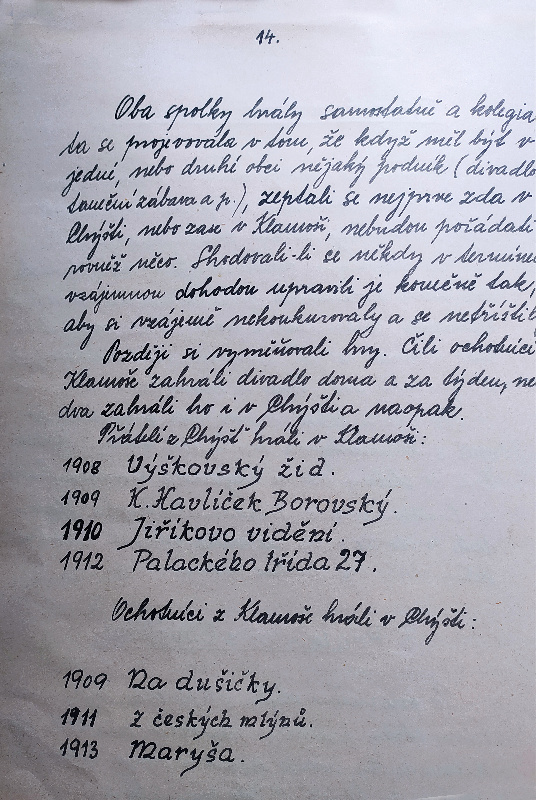 14.
Oba spolky hrály samostatně a kolegia
ta se projevovala v tom, že když měl být v
jedné, nebo druhé obci nějaký podnik (divadlo
taneční zábava a p.), zeptali se nejprve zda v
Chýšti, nebo zase v Klamoši, nebudou pořádali
rovněž něco. Shodovali-li se někdy v termíne
vzájemnou dohodou upravili je konečně tak,
aby si vzájemě nekonkurovaly a se netříštil
Později si vyměňovali hry. Čili ochotníci
Klamoše zahráli divadlo doma a za týden, ne
dva zahráli ho i v Chýšti a naopak.
Přátelé z Chýšť hráli v Klamoši:
1908 Výškovský žid.
1909 K. Havlíček Borovský.
1910 Jiříkovo vidění.
1912 Palackého třída 27.
Ochotníci z Klamoše hráli v Chýšti:
1909 Na dušičky.
1911 z českých mlýnů.
1913 Maryša.